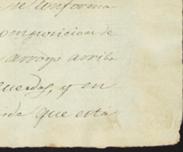 se conforma
composicion de
arroyo arriba
cuerdas, y en
que esta